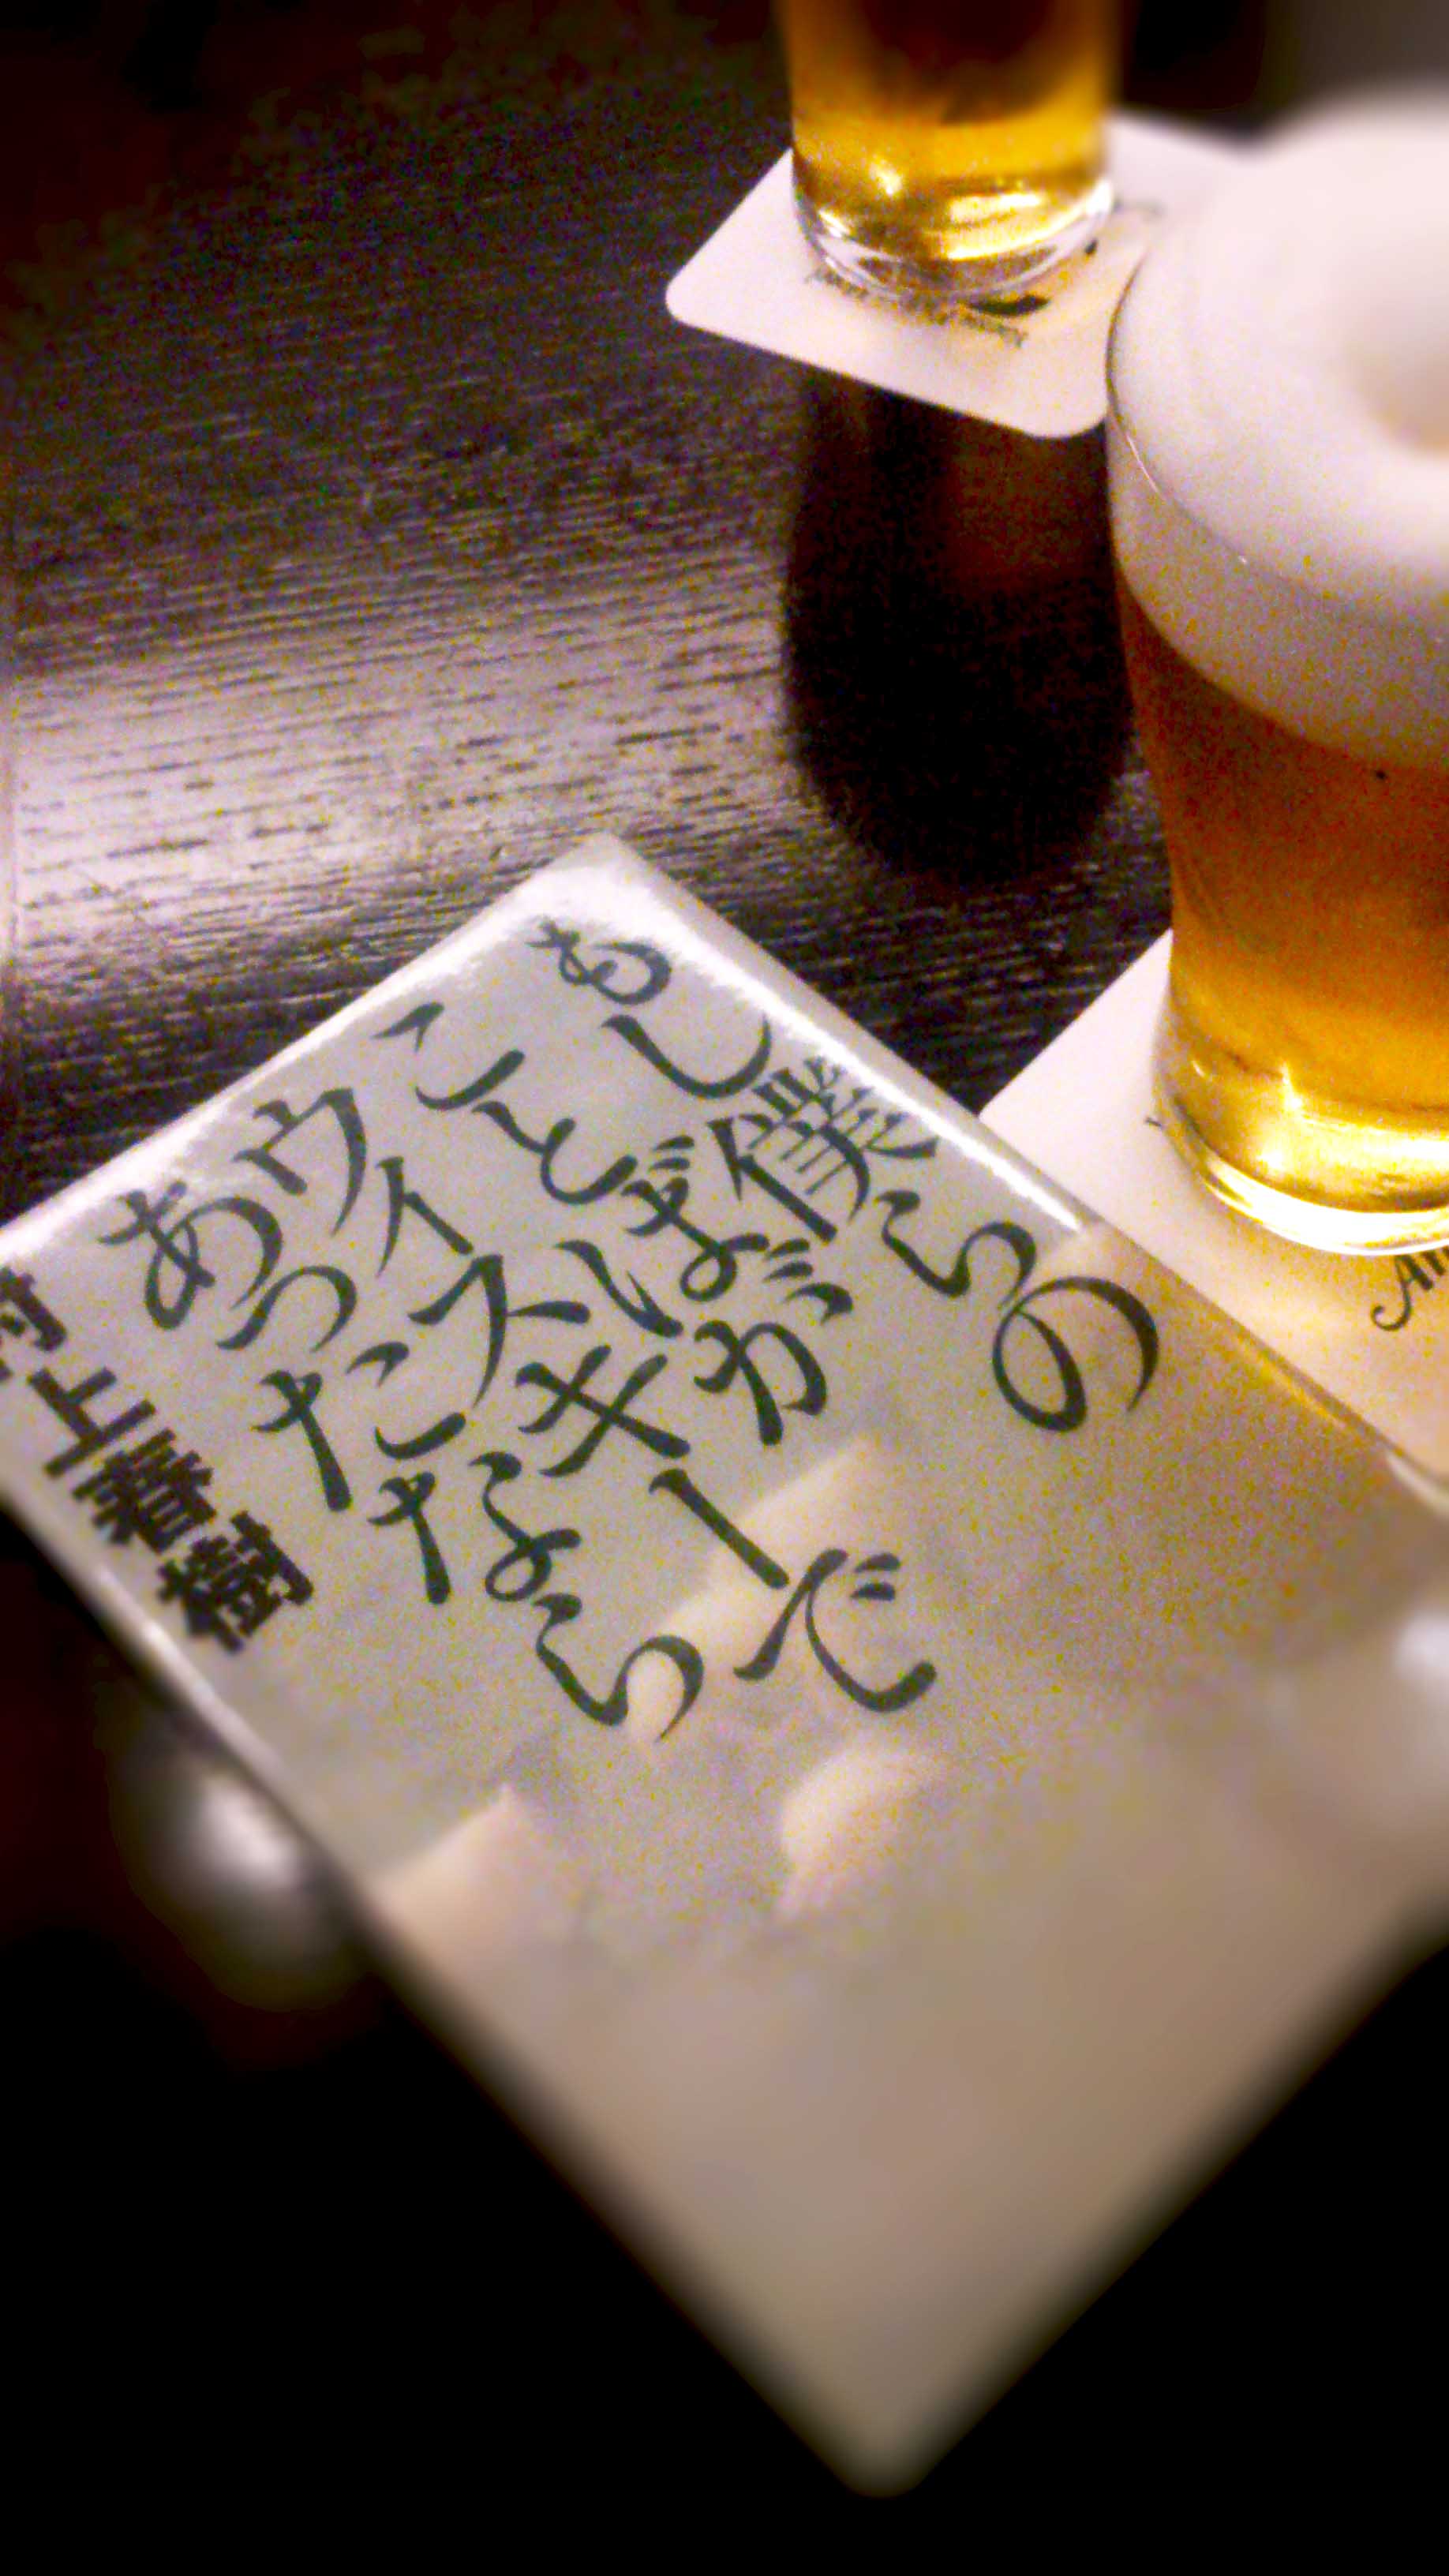 もし僕らの
ことばが
ウィスキーで
あったなら
村上春樹